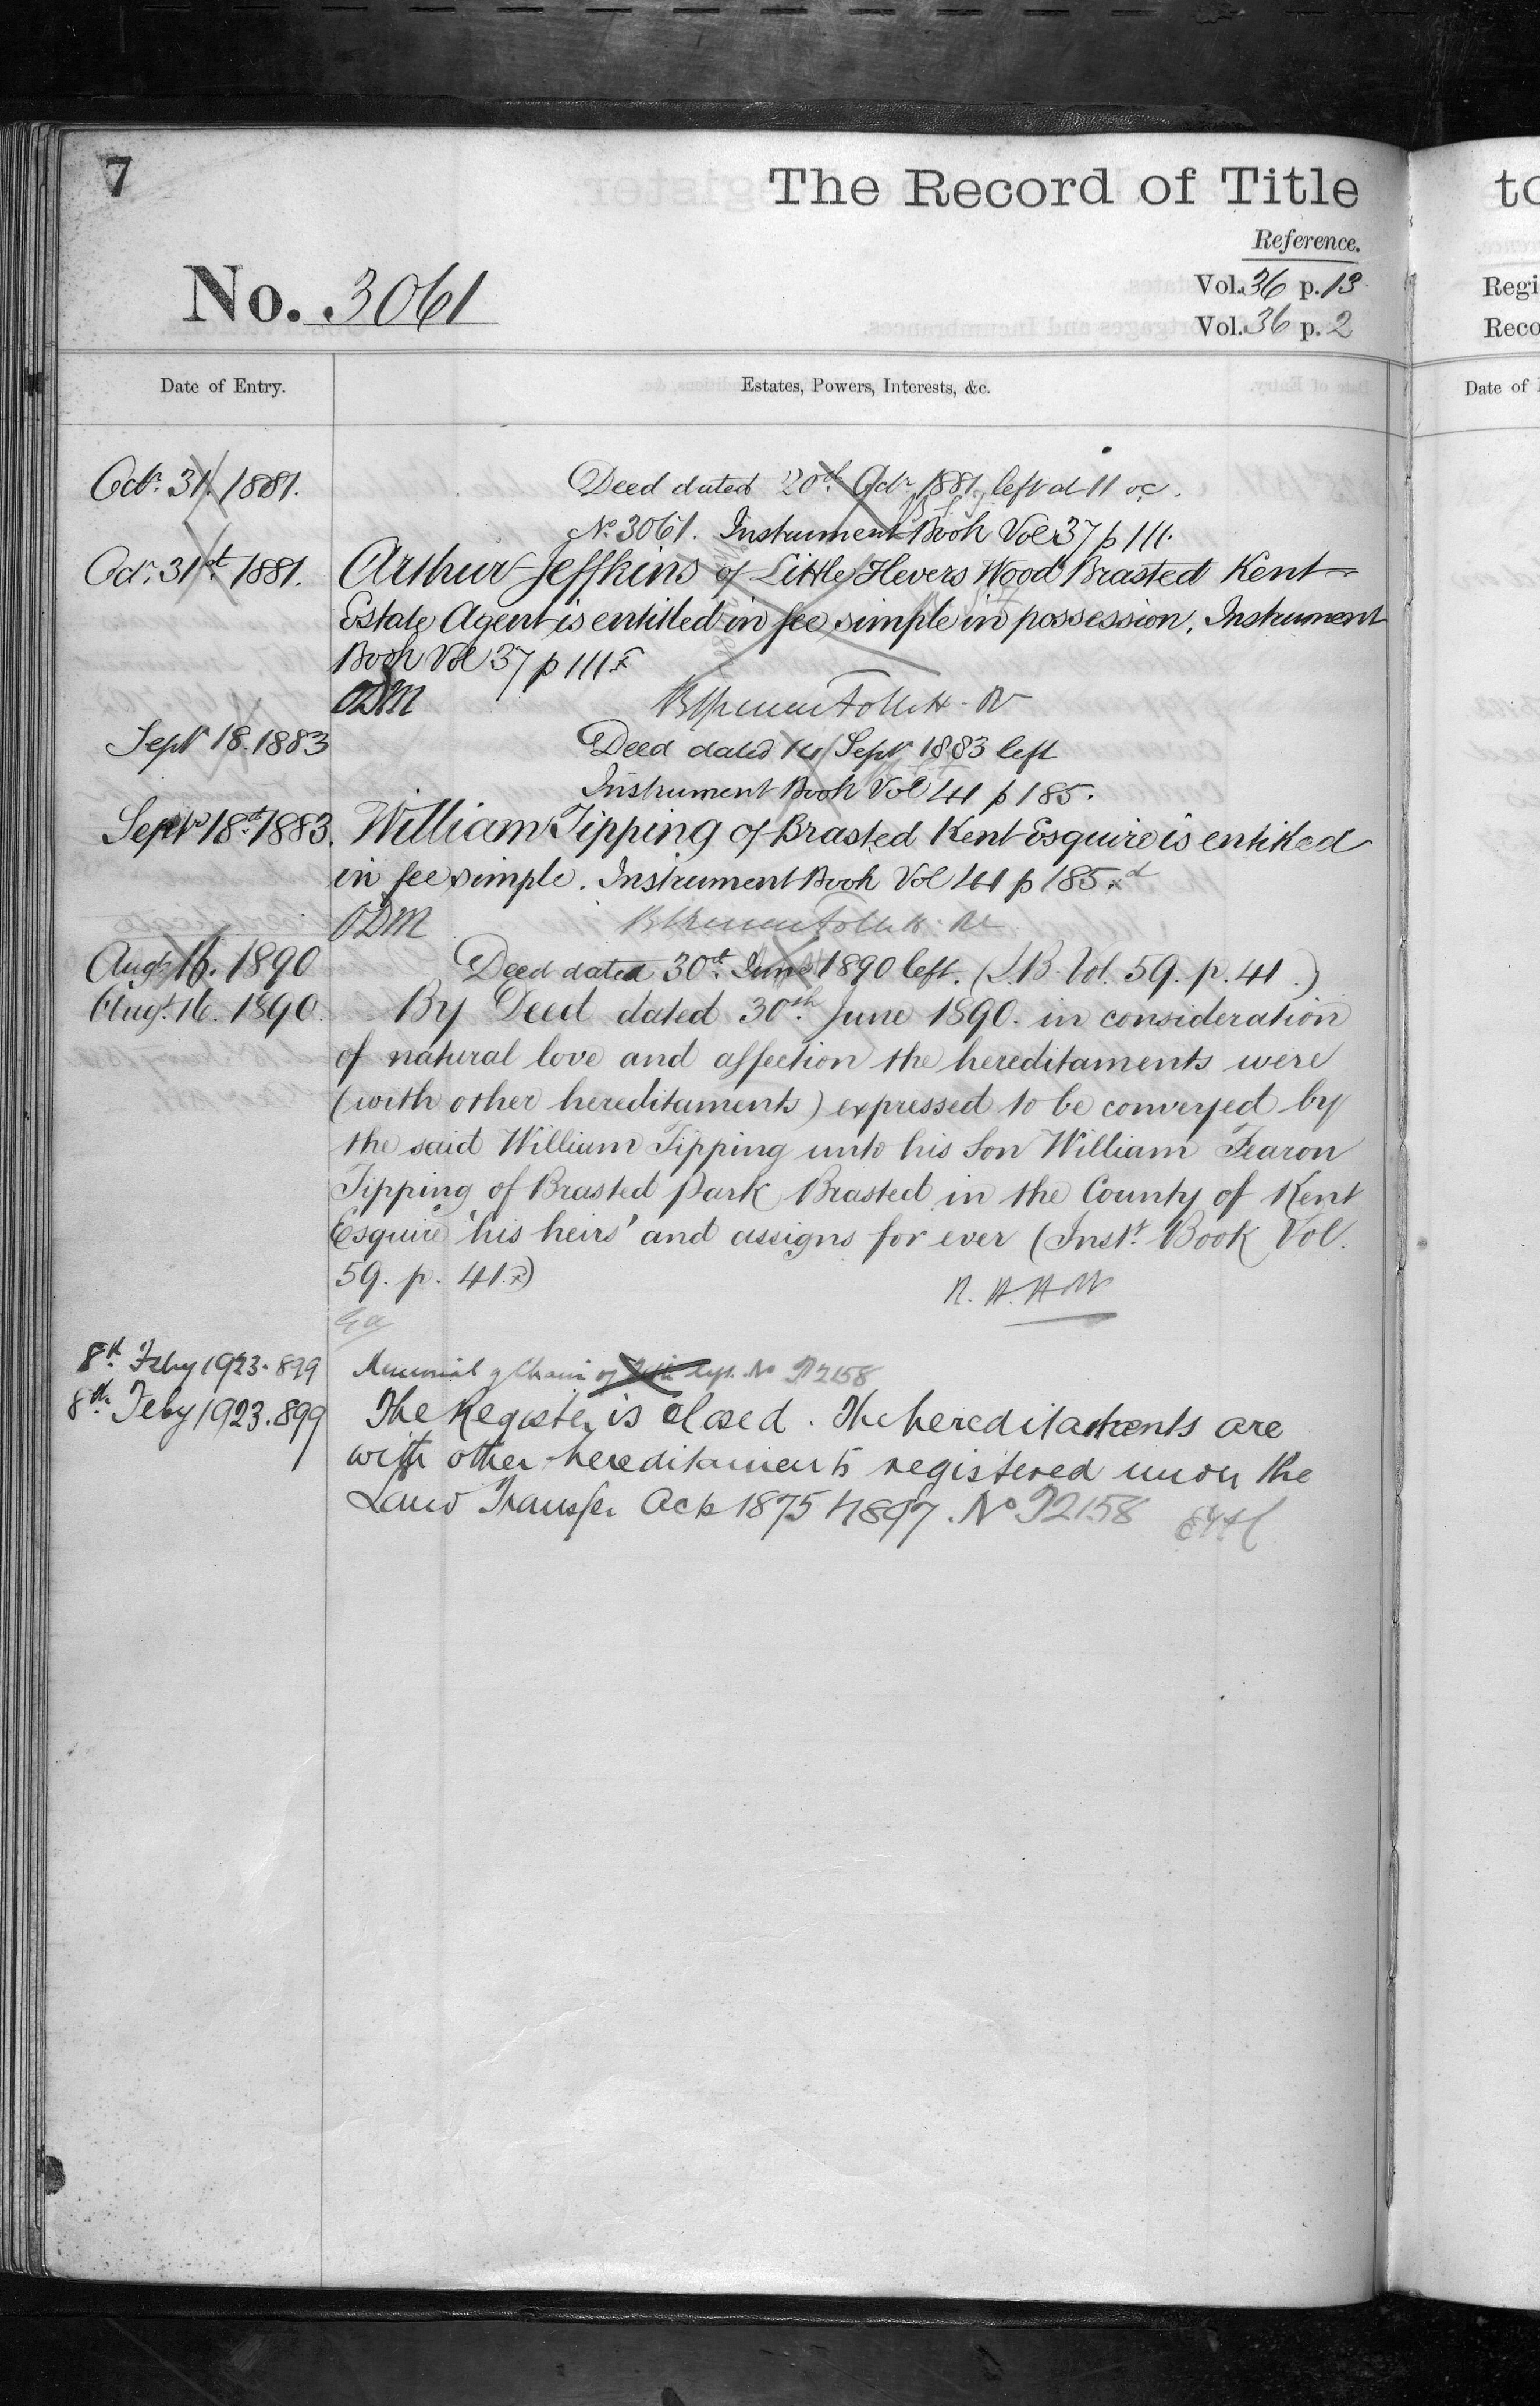 7
The Record of Title
Reference.
No. 3061
Vol. 36 p. 13
Vol. 36 p. 2
Date of Entry.
Estates, Powers, Interests, &c.
Octr. 31. 1881. Deed dated 20th Octr 1881. left at 11 oc.
No. 3061. Instrument Book Vol 37 p 111.
Oct. 31st 1881. Arthur Jeffkins of Little Hevers Wood Brasted Kent
Estate Agent is entitled in fee simple in possession. Instrument
Book Vol 37 p 111
ODM
Sept 18. 1883 Deed dated 14 Sept 1883 left
Instrument Book Vol 41 p 185.
Sept 18th 1883. William Tipping of Brasted Kent Esquire is entitled
in fee simple. Instrument Book Vol 41 p 185.
ODM
Augt 16. 1890 Deed dated 30th June 1890 left. (I.B. Vol. 59. p. 41.)
Augt. 16. 1890. By Deed dated 30th June 1890. in consideration
of natural love and affection the hereditaments were
(with other hereditaments) expressed to be conveyed by
the said William Tipping unto his Son William Fearon
Tipping of Brasted Park Brasted in the County of Kent
Esquire 'his heirs' and assigns for ever (Inst. Book Vol.
59. p. 41.)
8th Feby 1923. 899 Memorial of No P2158
8th Feby 1923. 899 The Register is closed. The hereditaments are
with other hereditaments registered under the
Land Transfer Acts 1875 & 1897. No P2158
to
Regi
Reco
Date of